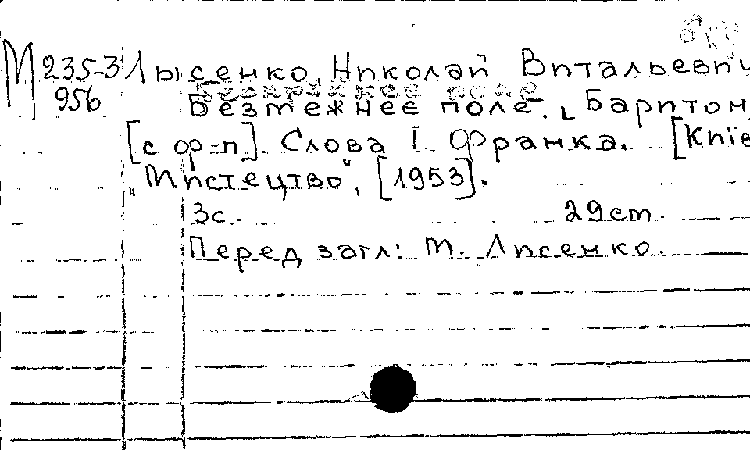 М 235-3 Лысенко, Николай Витальевич
956 Безмежнее поле. Баритон,
[с фр-п]. Слова І. Франка. [Київ
"Мистецтво", [1953].
3с. 29cm.
Перед загл: М. Лисенко.